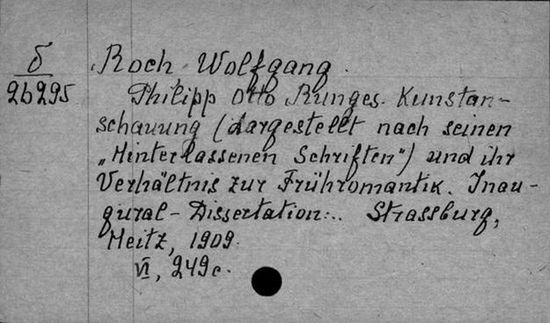 δ
26295
Roch, Wolfgang.
Philipp Otto Runges Kunstan-
schauung (dargestellt nach seinen
„Hinterlassenen Schriften") und ihr
Verhältnis zur Frühromantik. Inau-
gural-Dissertation... Strassburg,
Heitz, 1909.
VI, 249c.